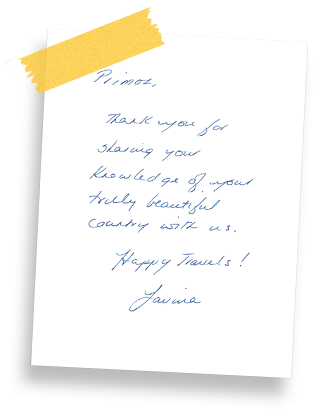 Primoz,
Thank you for
sharing your
knowledge of your
trully beautiful
country with us.
Happy Travels!
Lavina